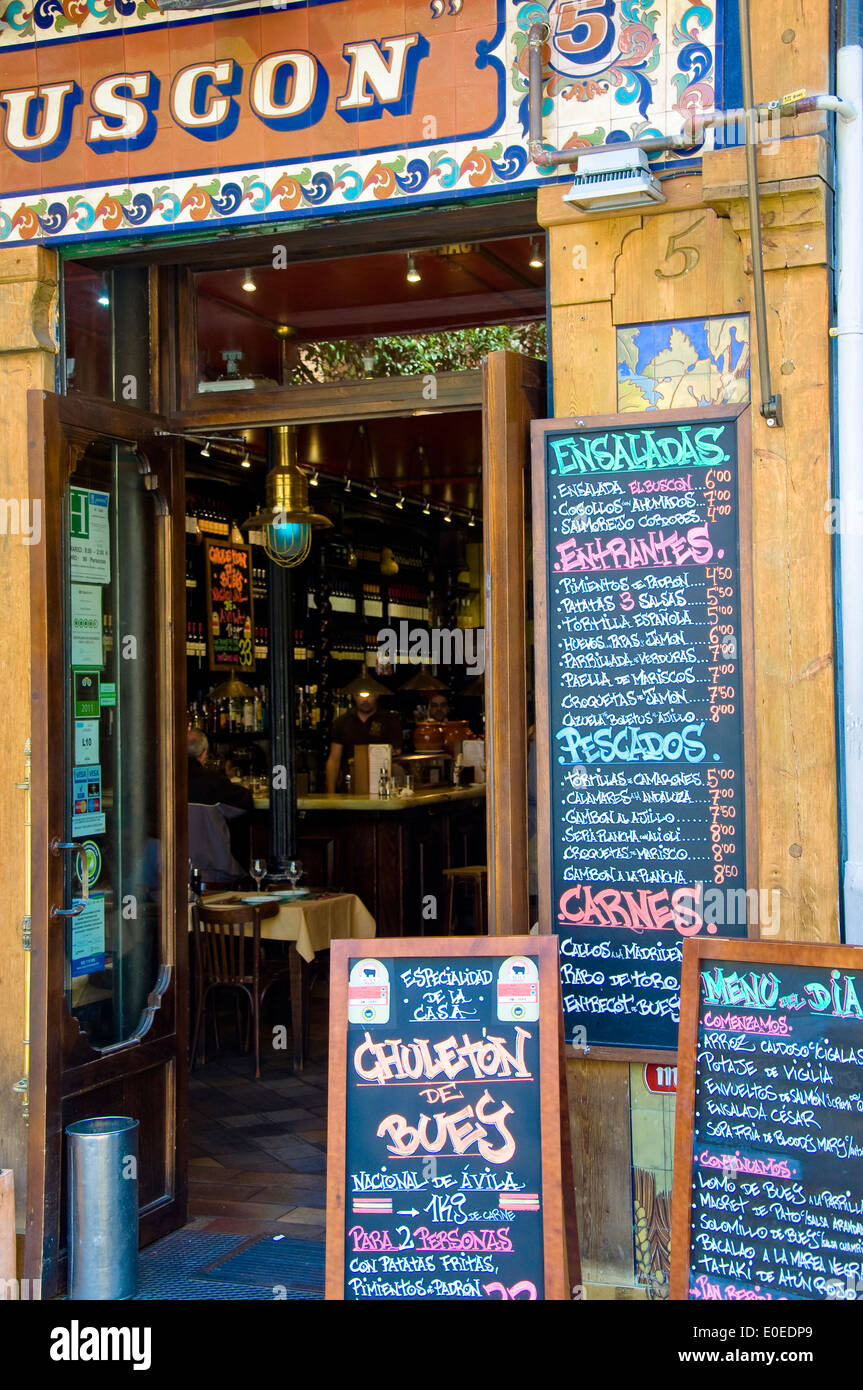 USCON
5
5
ENSALADAS
ENSALADA EL BUSCÓN... 6'00
COGOLLOS CON AHUMADOS 7'00
SALMOREJO CORDOBES 4'00
ENTRANTES
PIMIENTOS DE PADRÓN 4'50
PATATAS 3 SALSAS 5'50
TORTILLA ESPAÑOLA 5'00
HUEVOS PAPAS Y JAMÓN 6'00
PARRILLADA DE VERDURAS 7'00
PAELLA DE MARISCO 7'00
CROQUETAS DE JAMÓN 7'50
CAZUELA BOLETUS 8'00
PESCADOS
TORTILLAS DE CAMARONES 5'00
CALAMARES A LA ANDALUZA 7'50
GAMBÓN AL AJILLO 8'00
SEPIA PLANCHA CON ALIOLI 8'00
CROQUETAS DE MARISCO 8'00
GAMBÓN A LA PLANCHA 8'50
CARNES.
CALLOS A LA MADRILEÑA
RABO DE TORO
ENTRECOT DE BUEY
CHULETÓN
ÁVILA
33
H
2011
L10
VISA VISA
ESPECIALIDAD
DE LA
CASA
CHULETÓN
DE
BUEY
NACIONAL DE ÁVILA
1KG DE CARNE
PARA 2 PERSONAS
CON PATATAS FRITAS,
PIMIENTOS DE PADRÓN
MENÚ DEL DÍA
COMENZAMOS
. ARROZ CALDOSO CIGALAS
. POTAJE DE VIGILIA
. ENVUELTOS DE SALMÓN
. ENSALADA CÉSAR
. SOPA FRÍA DE BLOODY MARY
CONTINUAMOS
. LOMO DE BUEY A LA PARRILLA
. MAGRET DE PATO SALSA
. SOLOMILLO DE BUEY SALSA
. BACALAO A LA MAREA NEGRA
. TATAKI DE ATÚN ROJO
alamy
Image ID: E0EDP9
www.alamy.com